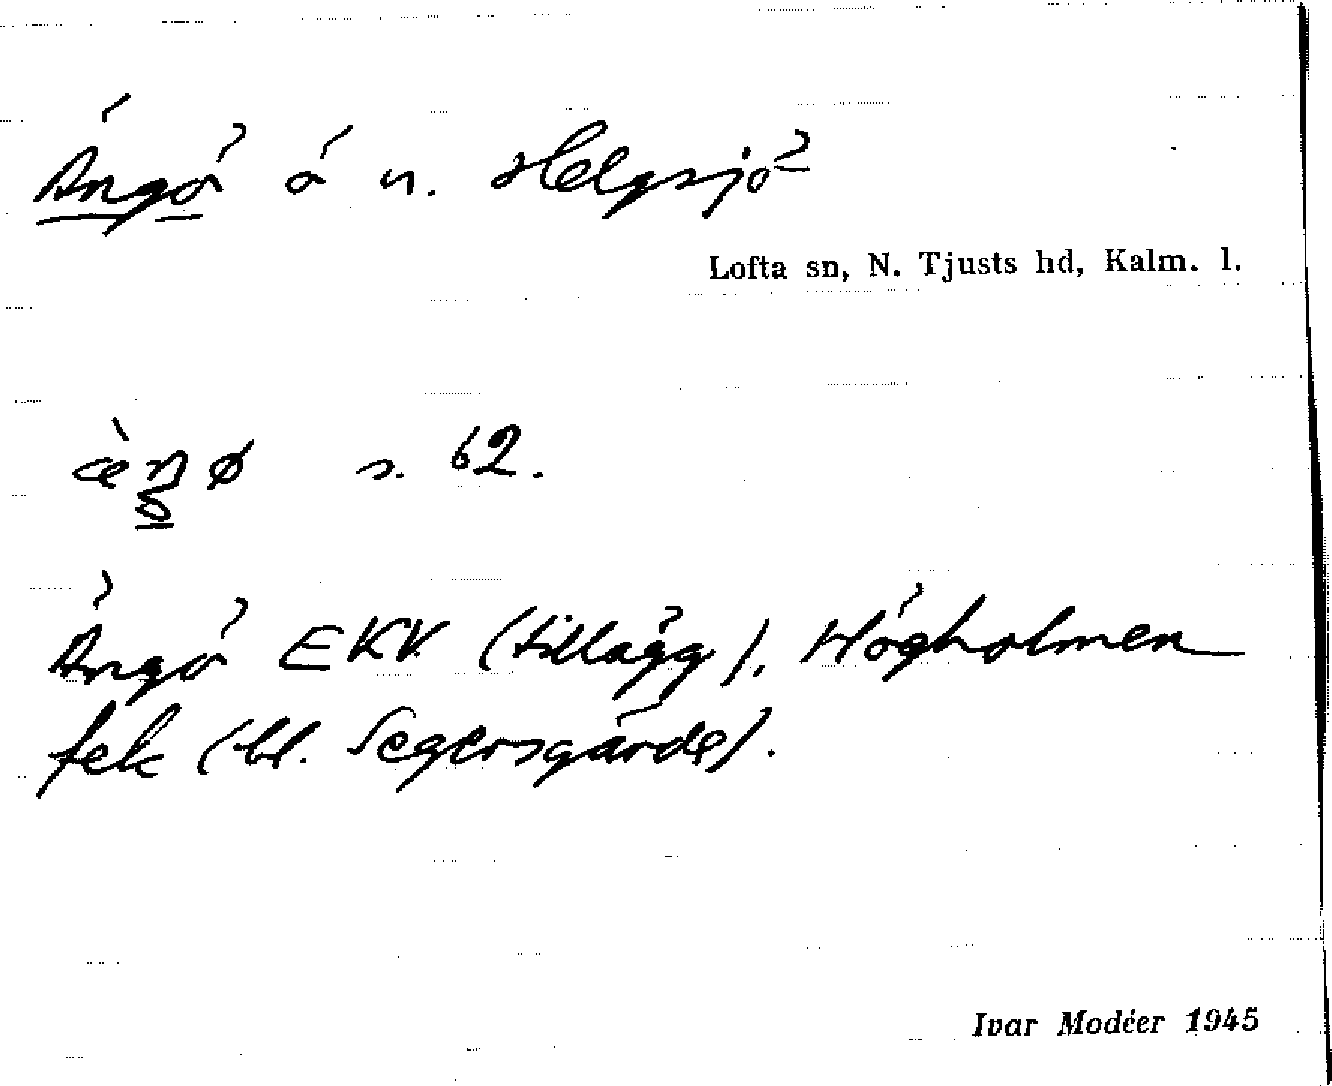 Ängö ö n. Helgsjö
Lofta sn, N. Tjusts hd, Kalm. l.
s. 62.
Ängö EKV. (tillägg), Högholmen
fek (bl. Segersgärde).
Ivar Modéer 1945